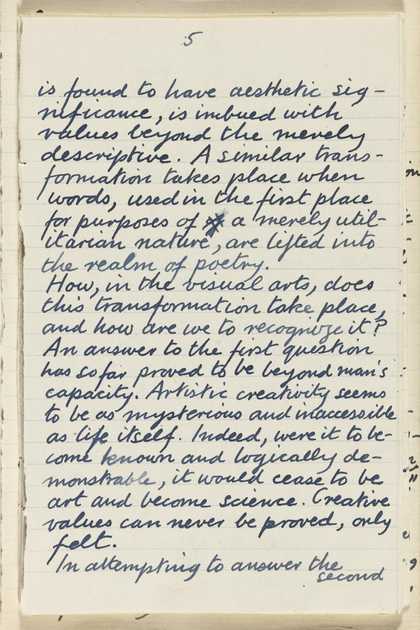 5
is found to have aesthetic sig-
nificance, is imbued with
values beyond the merely
descriptive. A similar trans-
formation takes place when
words, used in the first place
for purposes of a merely util-
itarian nature, are lifted into
the realm of poetry.
How, in the visual arts, does
this transformation take place,
and how are we to recognize it?
An answer to the first question
has so far proved to be beyond man's
capacity. Artistic creativity seems
to be as mysterious and inaccessible
as life itself. Indeed, were it to be-
come known and logically de-
monstrable, it would cease to be
art and become science. Creative
values can never be proved, only
felt.
In attempting to answer the
second